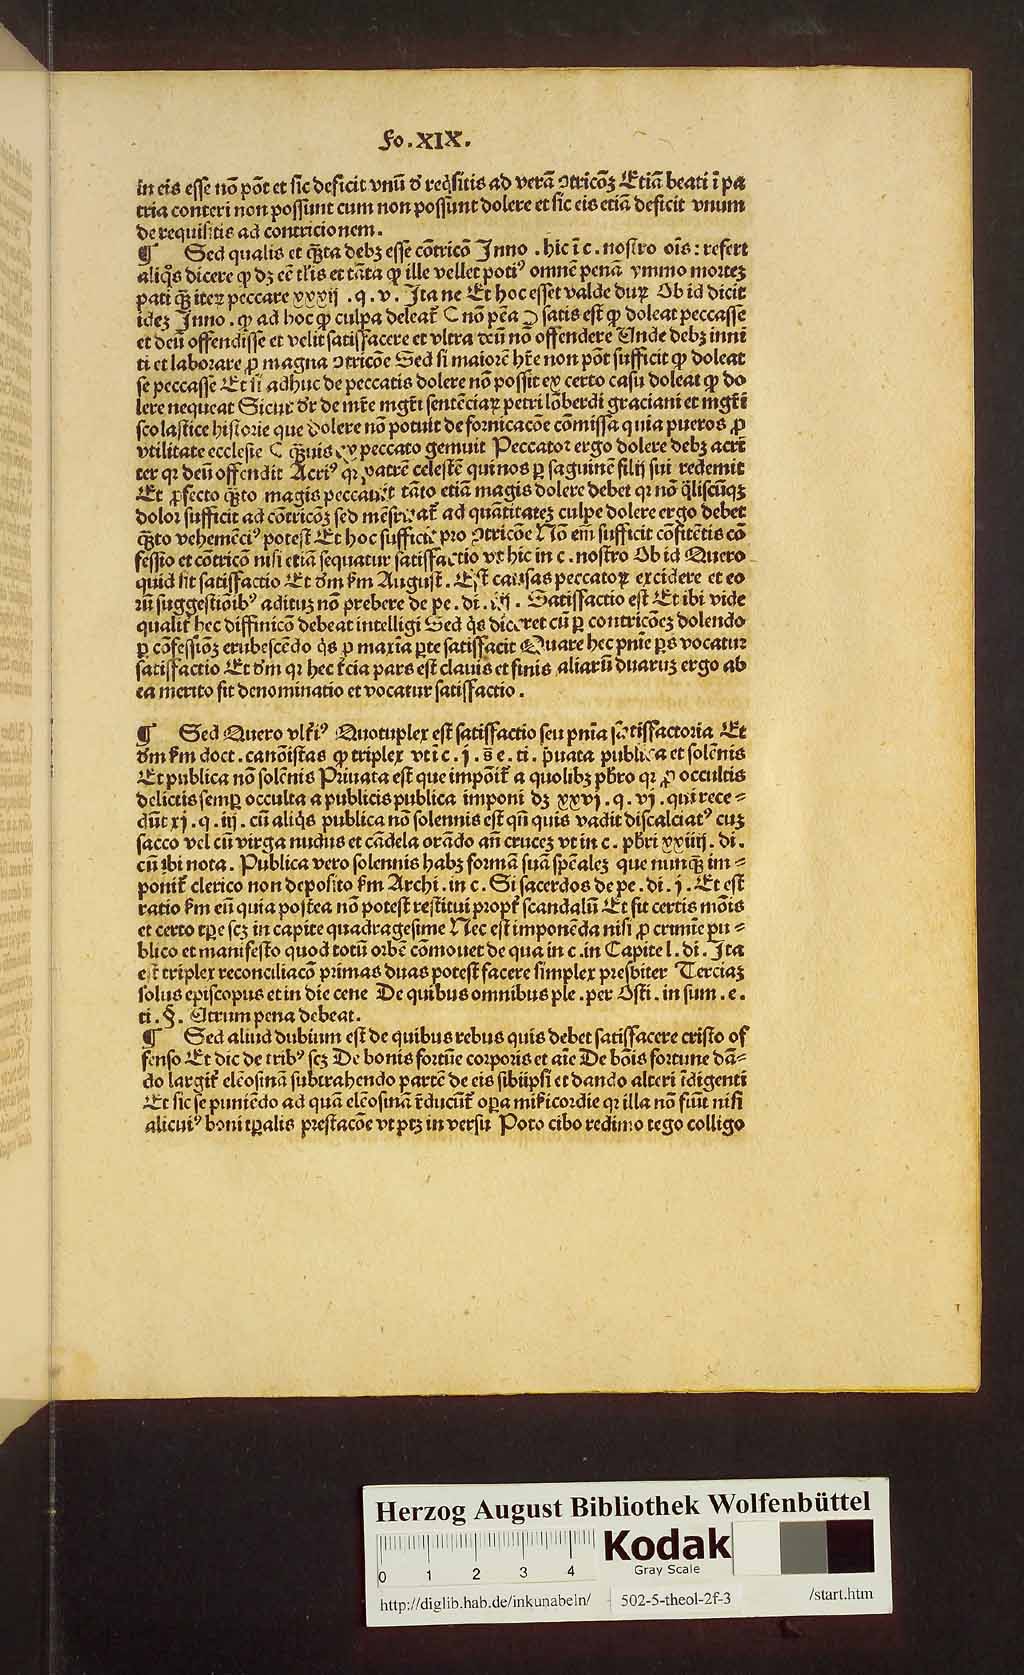 Fo.XIX.
in eis esse nō pōt et sic deficit vnū d' reqͥsitis ad verā ↄtricōꝫ Etiā beati ī pa
tria conteri non possunt cum non possunt dolere et sic eis etiā deficit vnum
de requisitis ad contricionem.
¶ Sed qualis et qͣꝫta debꝫ esse cōtricō Inno. hic ī c. nostro oīs: refert
aliqͦs dicere ꝙ dꝫ eē tl'is et tāta ꝙ ille vellet potiꝰ omnē penā ymmo morteꝫ
pati qͣꝫ iteꝝ peccare xxxij .q.v. Ita ne Et hoc esset valde duꝝ Ob id dicit
ideꝫ Inno. ꝙ ad hoc ꝙ culpa deleat' ( nō pēa ) satis est ꝙ doleat peccasse
et deū offendisse et velit satisfacere et vltra deū nō offendere Unde debꝫ inni
ti et laborare ꝓ magna ↄtricōe Sed si maiorē hr̄e non pōt sufficit ꝙ doleat
se peccasse Et si adhuc de peccatis dolere nō possit ex certo casu doleat ꝙ do
lere nequeat Sicut d'r de mr̄e mgr̄i sentēciaꝝ petri lōberdi graciani et mgr̄i
scolastice historie que dolere nō potuit de fornicacōe cōmissa quia pueros ꝓ
vtilitate ecclesie ( qͣꝫuis ex peccato gemuit Peccator ergo dolere debꝫ acrit'
ter qꝛ deū offendit Acriꝰ qꝛ patrē celestē qui nos ꝑ saguinē filij sui redemit
Et ꝓfecto qͣꝫto magis peccauit tāto etiā magis dolere debet qꝛ nō qͥliscūqꝫ
dolor sufficit ad cōtricōꝫ sed mēsurat' ad quātitateꝫ culpe dolere ergo debet
qͣꝫto vehemēciꝰ potest Et hoc sufficit pro ↄtricōe Nō em̄ sufficit cōfitētis cō
fessio et cōtricō nisi etiā sequatur satisfactio vt hic in c. nostro Ob id Quero
quid sit satisfactio Et d'm ẜm August'. Est causas peccatoꝝ excidere et eo
rū suggestioībꝰ adituꝫ nō prebere de pe. di. iij. Satisfactio est Et ibi vide
qualit' hec diffinicō debeat intelligi Sed qͥs diceret cū ꝑ contricōeꝫ dolendo
ꝑ cōfessiōꝫ erubescēdo qͥs ꝓ maxīa ꝑte satisfacit Quare hec pn̄ie ꝑs vocatur
satisfactio Et d'm qꝛ hec t'cia pars est clauis et finis aliarū duaruꝫ ergo ab
ea merito fit denominatio et vocatur satisfactio.
¶ Sed Quero vlt'iꝰ Quotuplex est satisfactio seu pn̄ia satisfactoria Et
d'm ẜm doct. canōistas ꝙ triplex vt ī c. j. s̄ e. ti. p̱uata publica et solēnis
Et publica nō solēnis Priuata est que impōit' a quolibꝫ pb̄ro qꝛ ꝓ occultis
delictis semꝑ occulta a publicis publica imponi dꝫ xxvj .q. vj. qui rece-
dūt xj .q. iij. cū aliqͥs publica nō solennis est qn̄ quis vadit discalciatꝰ cuꝫ
sacco vel cū virga nudus et cādela orādo an̄ cruceꝫ vt in c. pb̄ri xxiiij. di.
cū ibi nota. Publica vero solennis habꝫ formā suā spēaleꝫ que nunqͣꝫ im-
ponit' clerico non deposito ẜm Archi. in c. Si sacerdos de pe. di. j. Et est
ratio ẜm eū quia postea nō potest restitui propt' scandalū Et fit certis mōis
et certo tꝑe scꝫ in capite quadragesime Nec est imponēda nisi ꝓ crimīe pu-
blico et manifesto quod totū orbē cōmouet de qua in c. in Capite l. di. Ita
est triplex reconciliacō primas duas potest facere simplex presbiter Terciaꝫ
solus episcopus et in die cene De quibus omnibus ple. per Osti. in sum. e.
ti. §. Utrum pena debeat.
¶ Sed aliud dubium est de quibus rebus quis debet satisfacere cristo of
fenso Et dic de tribꝰ scꝫ De bonis fortūe corporis et aīe De bōis fortune dā-
do largit' elēosinā subtrahendo partē de eis sibiipsi et dando alteri īdigenti
Et sic se puniēdo ad quā elēosinā īducūt' oꝑa mi'icordie qꝛ illa nō fiūt nisi
alicuiꝰ boni tꝑalis prestacōe vt ptꝫ in versu Poto cibo redimo tego colligo
Herzog August Bibliothek Wolfenbüttel
0 1 2 3 4
Kodak
Gray Scale
http://diglib.hab.de/inkunabeln/ 502-5-theol-2f-3 /start.htm